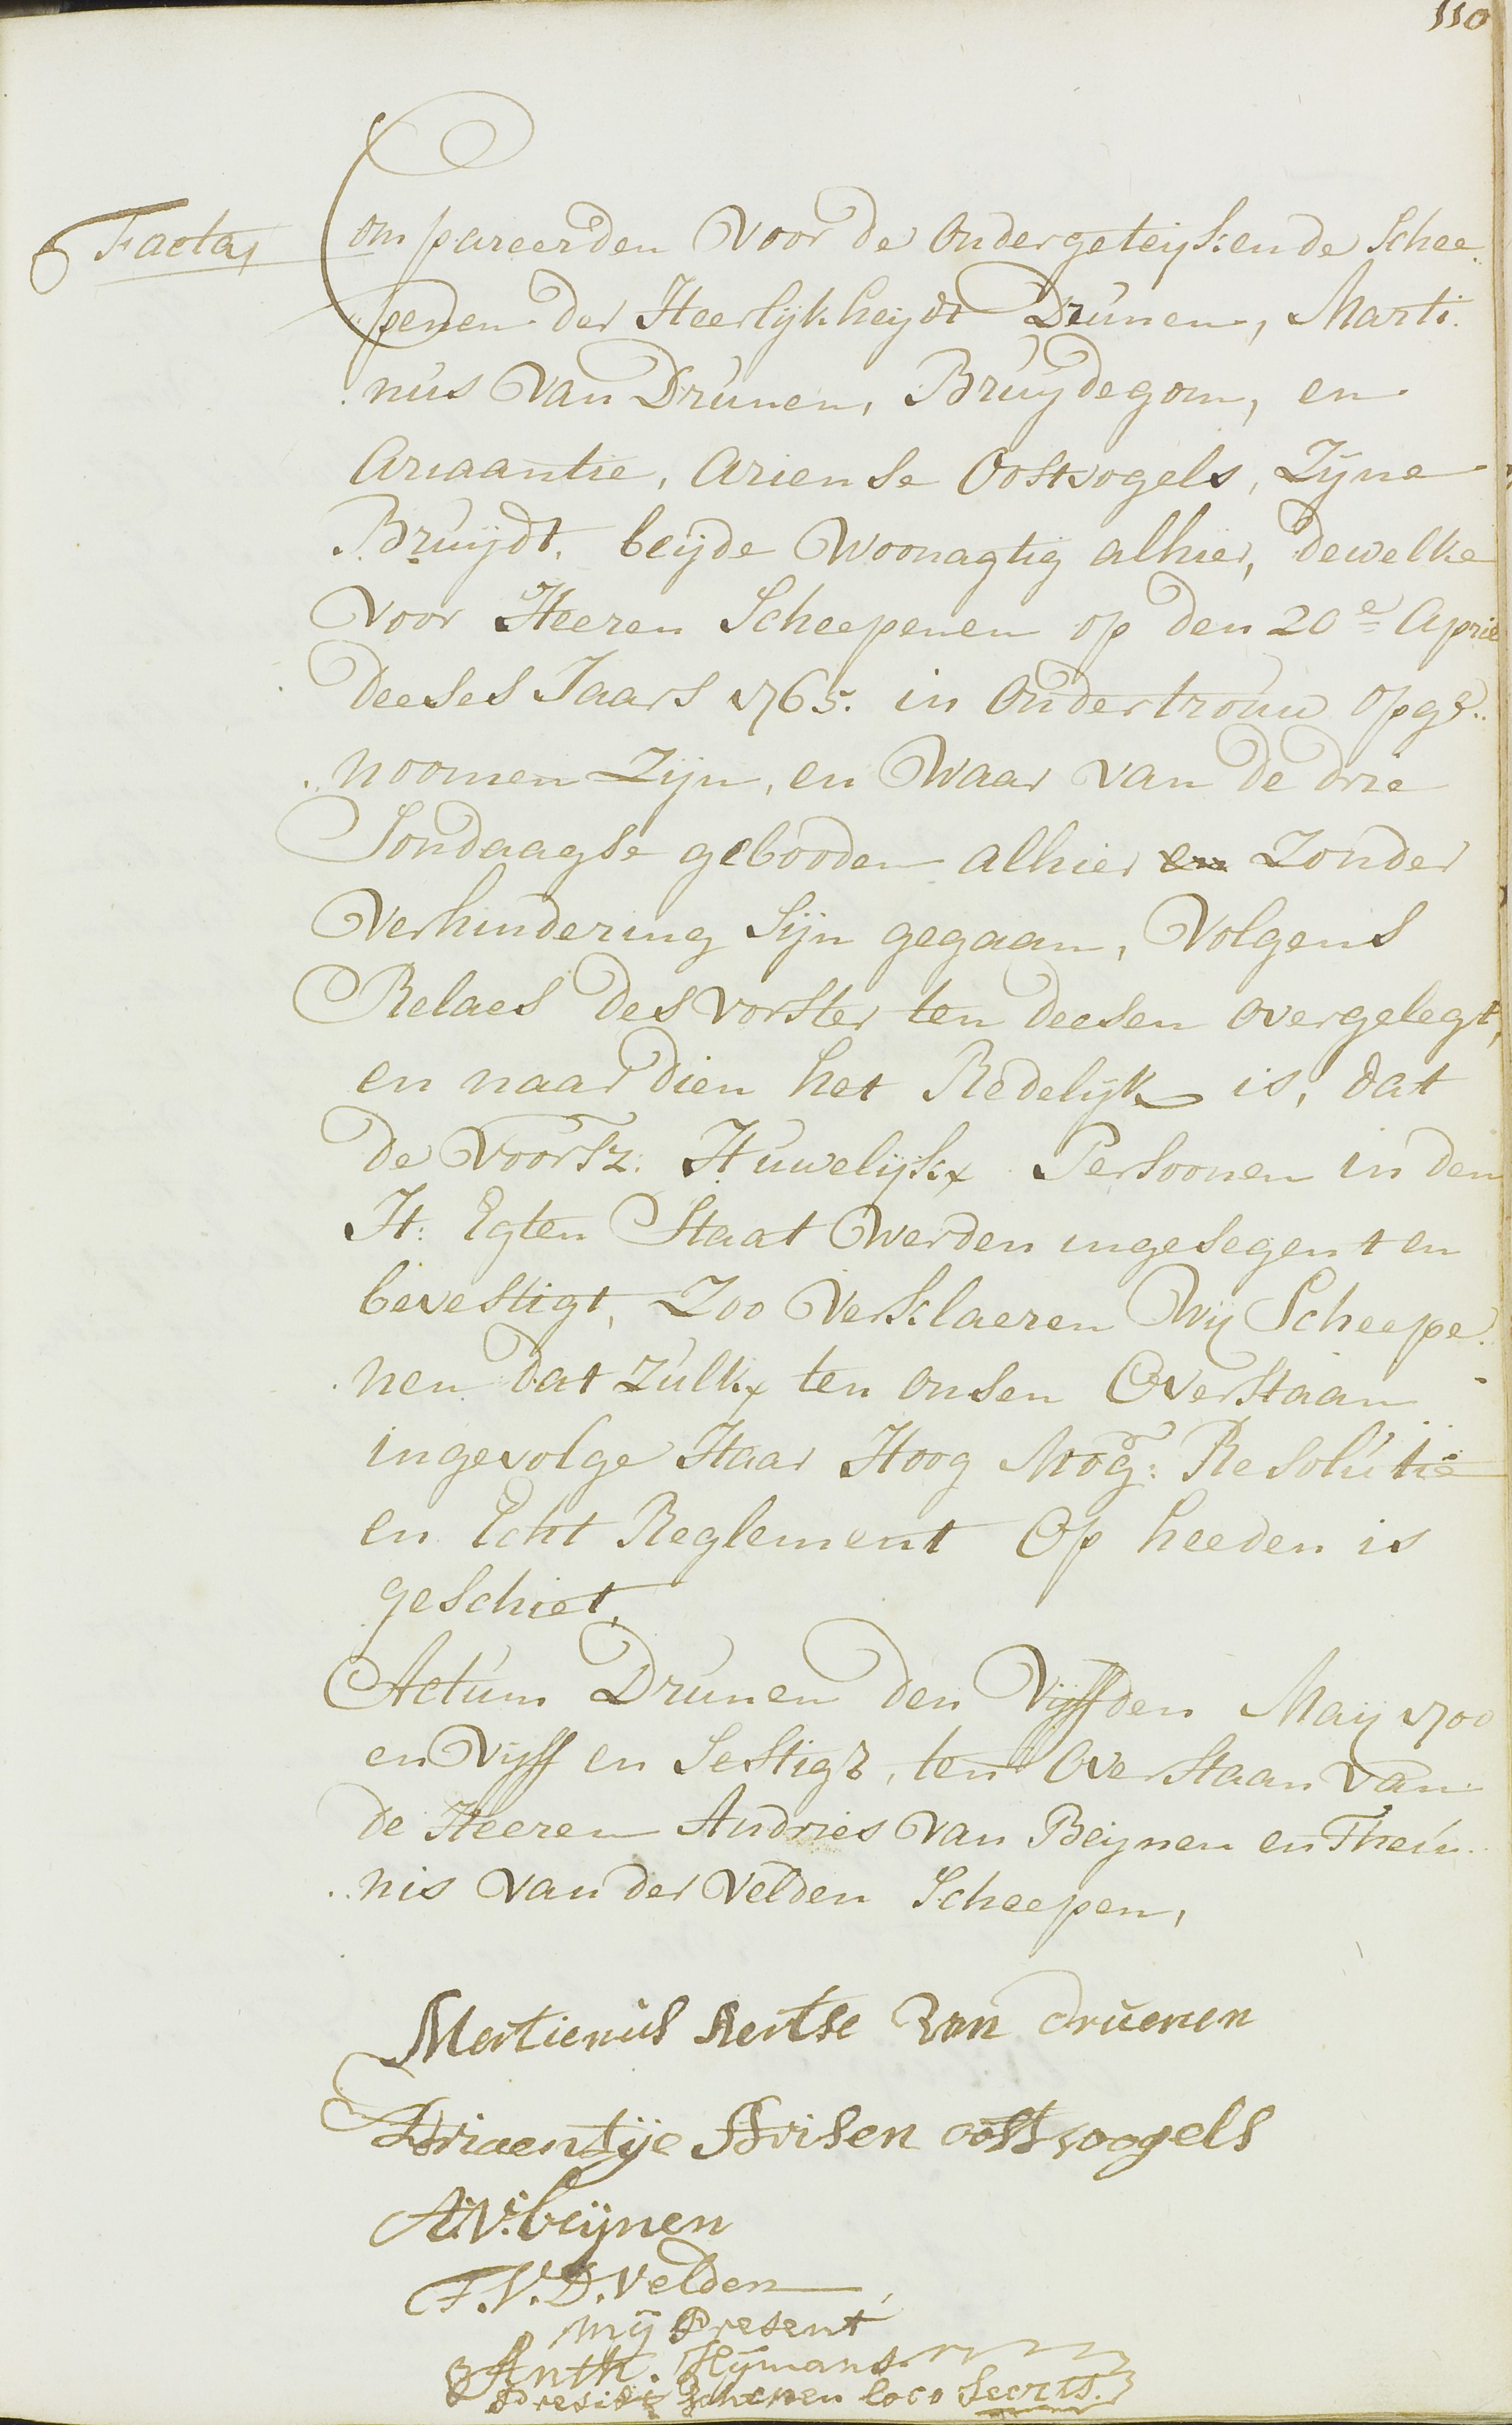 110
Facta
Compareerden Voor de Ondergeteijkende Schee
penen der Heerlijkheijdt Drúnen, Marti
nús Van Drúnen, Brúijdegom, en
Ariaantie, Ariense Oostvogels, Zijne
Brúijdt, beijde Woonagtig alhier, dewelke
Voor Heeren Scheepenen op den 20e April
deeses Jaars 1765. in Ondertroúw opge
noomen Zijn, en Waar van de drie
Sondaagse gebooden alhier Zonder
Verhindering Sijn gegaan, Volgens
Relaes des vorster ten deesen overgelegt,
en naardien het Redelijk is, dat
de Voorsz. Húwelijkx Persoonen in den
H: Egten Staat Werden ingesegent en
bevestigt, Zoo Verklaeren Wij Scheepe
nen dat Zúlkx ten onsen Overstaan
ingevolge Haar Hoog Mog: Resolútie
en Echt Reglement Op heeden is
geschiet,
Actúm Drúnen den Vijffden Maij 1700
en Vijff en Sestigh, ten Overstaan Van
de Heeren Andries Van Beijnen en Theú
nis van der Velden Scheepen,
Mertienús Aertse Van drúenen
Adriaentije Arisen oostvoogels
A:V:beijnen
T.V.D.Velden
Mij Present
Anth. Hijmans
Preside Schepen loco Secrts.